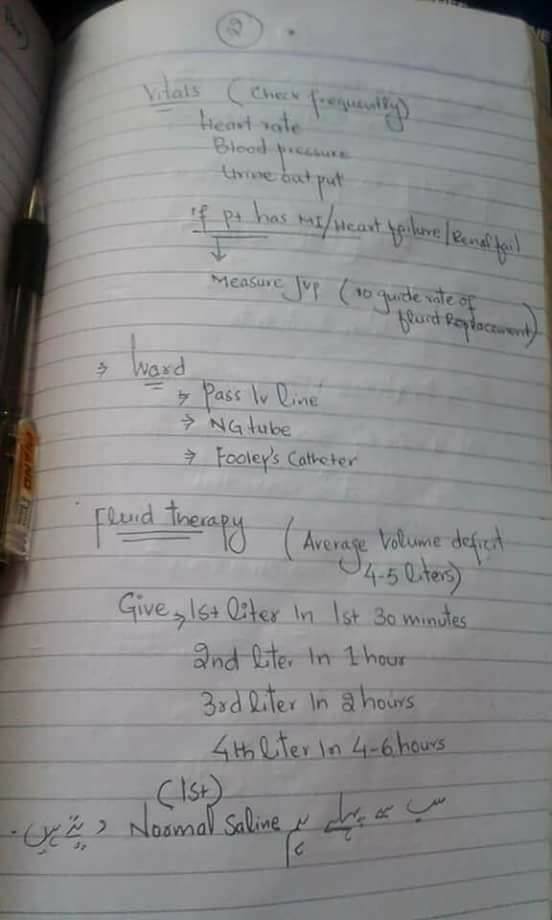 2
Vitals (Check frequently)
Heart rate
Blood pressure
Urine output
if pt has MI/Heart failure/Renal fail
Measure JVP (to guide rate of
fluid Replacement)
⇒ Ward
⇒ Pass IV line
⇒ NG tube
⇒ Fooley's Catheter
Fluid therapy (Average Volume deficit
4-5 liters)
Give ⇒ 1st liter In 1st 30 minutes
2nd liter In 1 hour
3rd liter In 2 hours
4th liter In 4-6 hours
(1st)
سب سے پہلے ہم Normal Saline دیتے ہیں۔